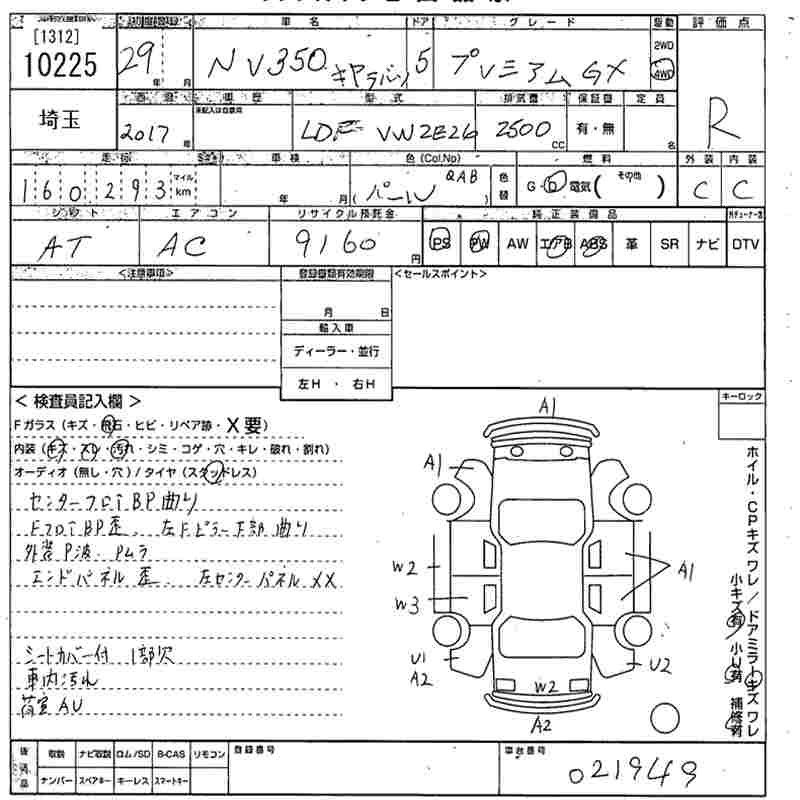 [1312]
10225
埼玉
車名 ドア グレード 駆動 評価点
29 年 月 NV350 キャラバン 5 プレミアム GX 2WD 4WD R
車歴 型式 排気量 保証書 定員
2017 年 LDF VW2E26 2500 cc 有・無 名
走行 車検 色(Col.No) 色替 燃料 外装 内装
160293 マイル km 年 月 ( パール QAB ) G・D 電気( その他 ) C C
シフト エアコン リサイクル預託金 純正装備品
AT AC 9160 円 PS PW AW エアB ABS 革 SR ナビ DTV
<注意事項> 登録書類有効期限 <セールスポイント>
月 日
輸入車
ディーラー・並行
左H ・ 右H
<検査員記入欄> キーロック
Fガラス(キズ・飛石・ヒビ・リペア跡・X要)
内装(キズ・スレ・汚れ・シミ・コゲ・穴・キレ・破れ・割れ)
オーディオ(無し・穴)/タイヤ(スタッドレス)
センターフロアBP曲り
FフロアBP歪、左Fピラー下部曲り
外装P波、Pムラ
エンドパネル歪、左センターパネルXX
シートカバー付 1部欠
車内汚れ
荷室AU
A1
A1
W2 A1
W3
U1 U2
A2
W2
A2
ホイル・CPキズ ワレ/ドアミラーキズ ワレ
小キズ有 小U有 補修有
後送品 取説 ナビ取説 ロム/SD B-CAS リモコン 登録番号 車台番号
ナンバー スペアキー キーレス スマートキー 021949